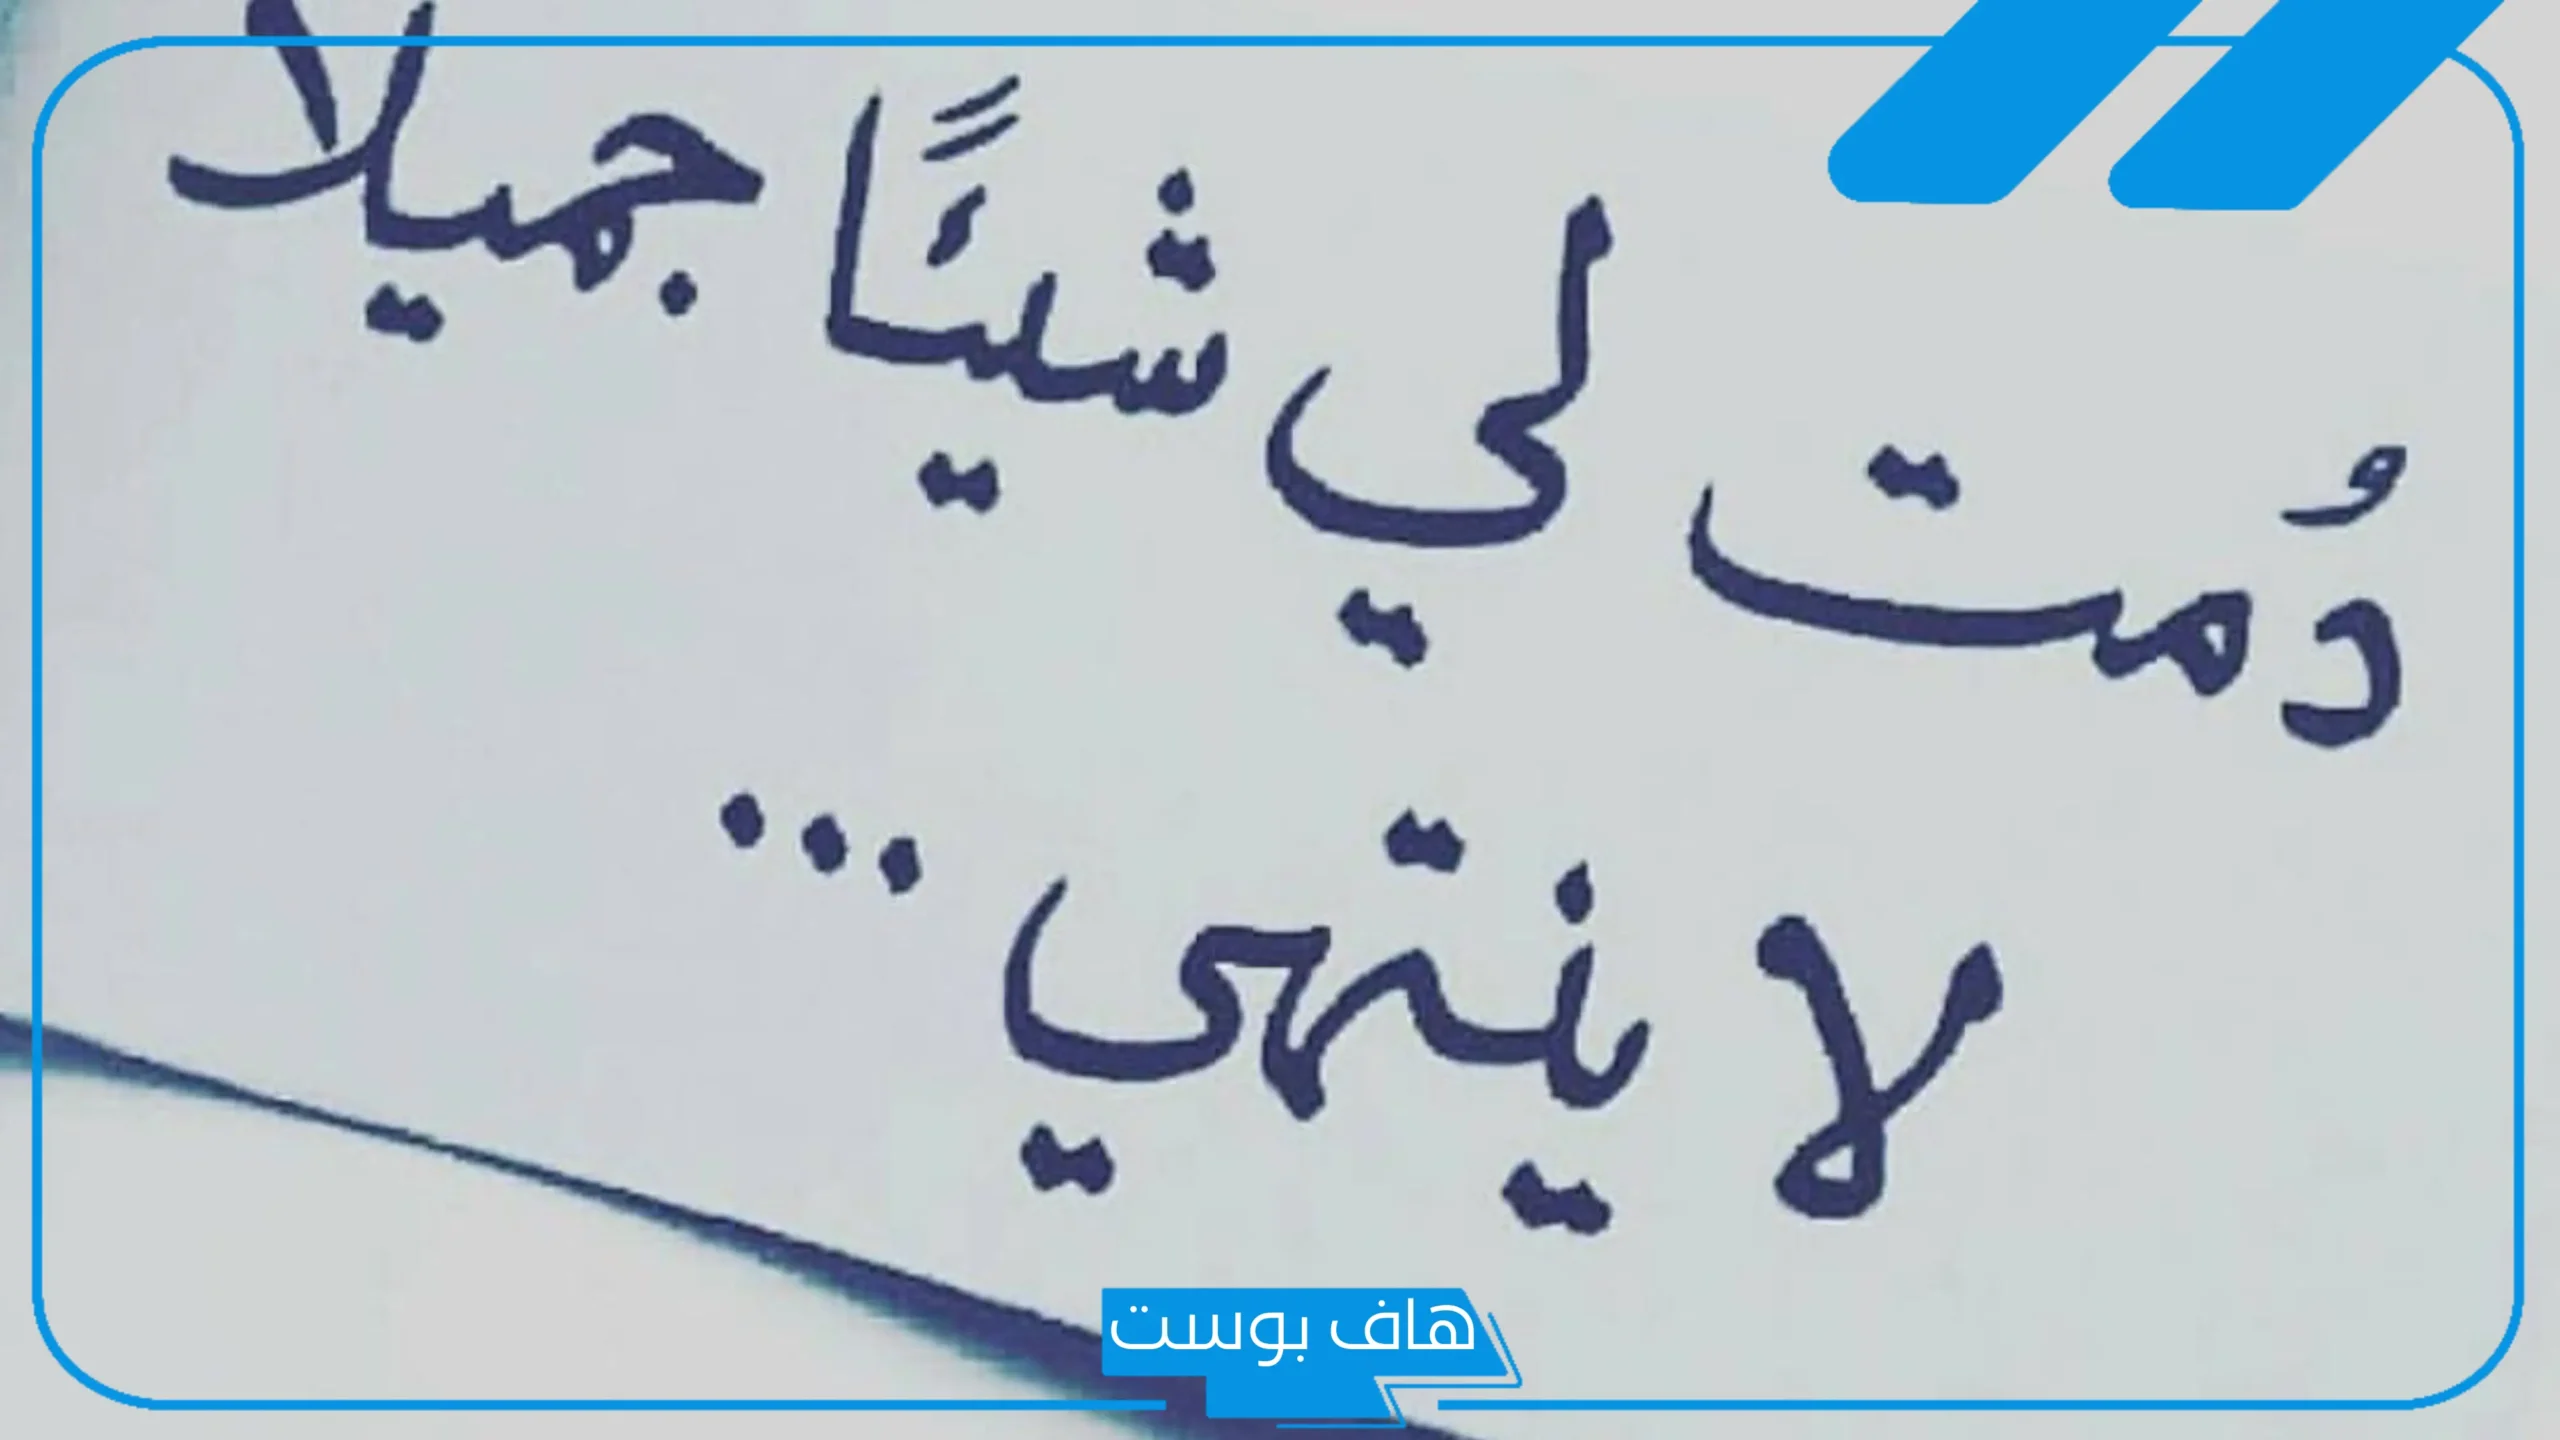 دُمت لي شيئًا جميلا
لا ينتهي...
هاف بوست